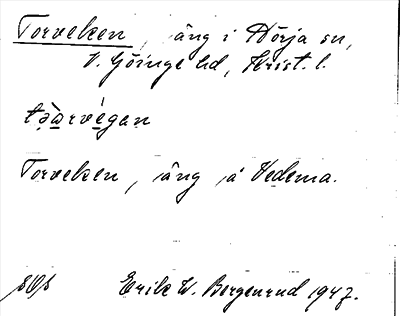 Torveken, äng i Hörja sn,
V. Göinge hd, Krist. l.
Torveken, äng å Vedema.
Erik W. Borgenrud 1947.